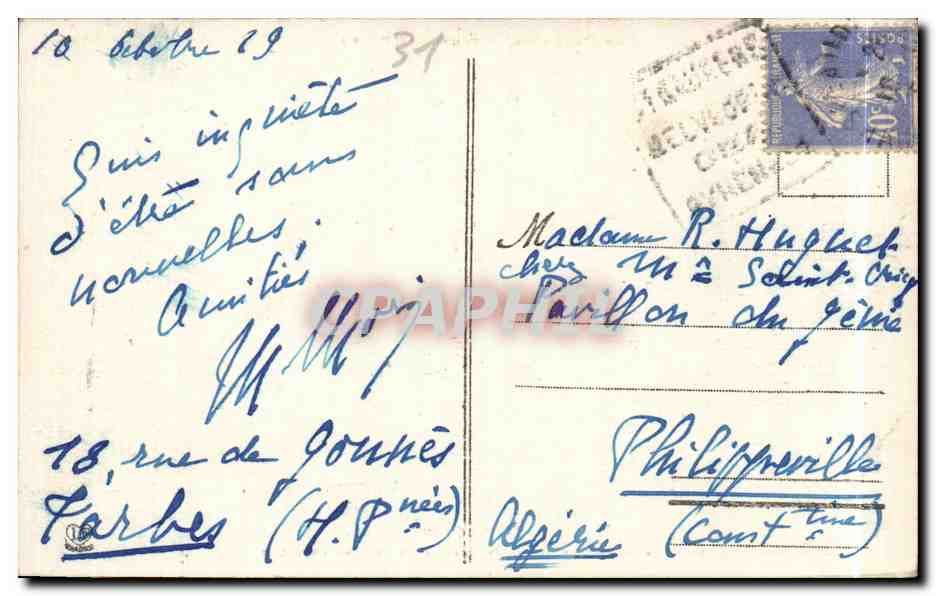 10 Octobre 29
31
Suis inquiète
d'être sans
nouvelles.
Amitiés
18, rue de Gonnès
Tarbes (H. Pnées)
REPUBLIQUE FRANCAISE
POSTES
40c
Madame R. Huguet
chez Mme Saint-
Pavillon du Génie
Philippeville
Algérie (Consttine)
CPAPHIL